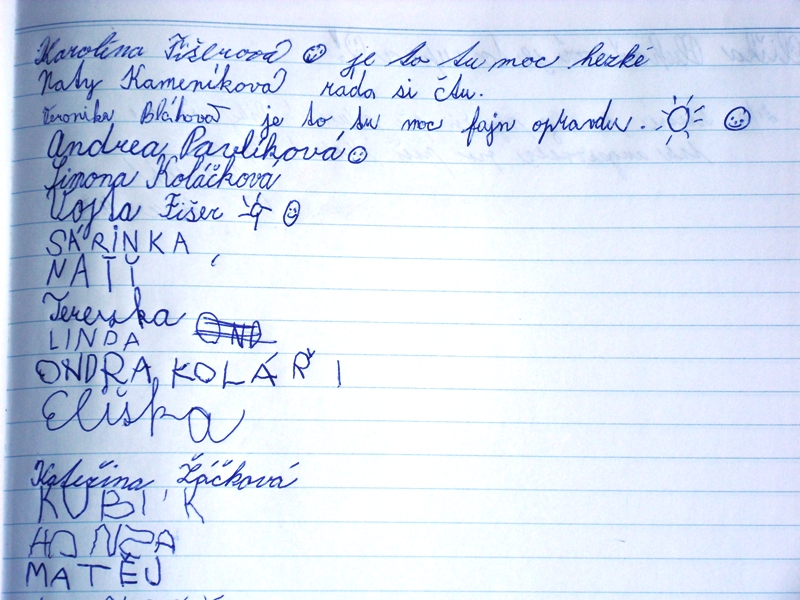 Karolína Fišerová je to tu moc hezké
Naty Kameníková ráda si čtu.
Veronika Bláhová je to tu moc fajn opravdu.
Andrea Pavlíková
Simona Koláčková
Vojta Fišer
SÁRINKA
NATY
Terezka
LINDA OND
ONDRA KOLÁŘ
Eliška
Kateřina Žáčková
KUBÍK
HONZA
MATĚJ